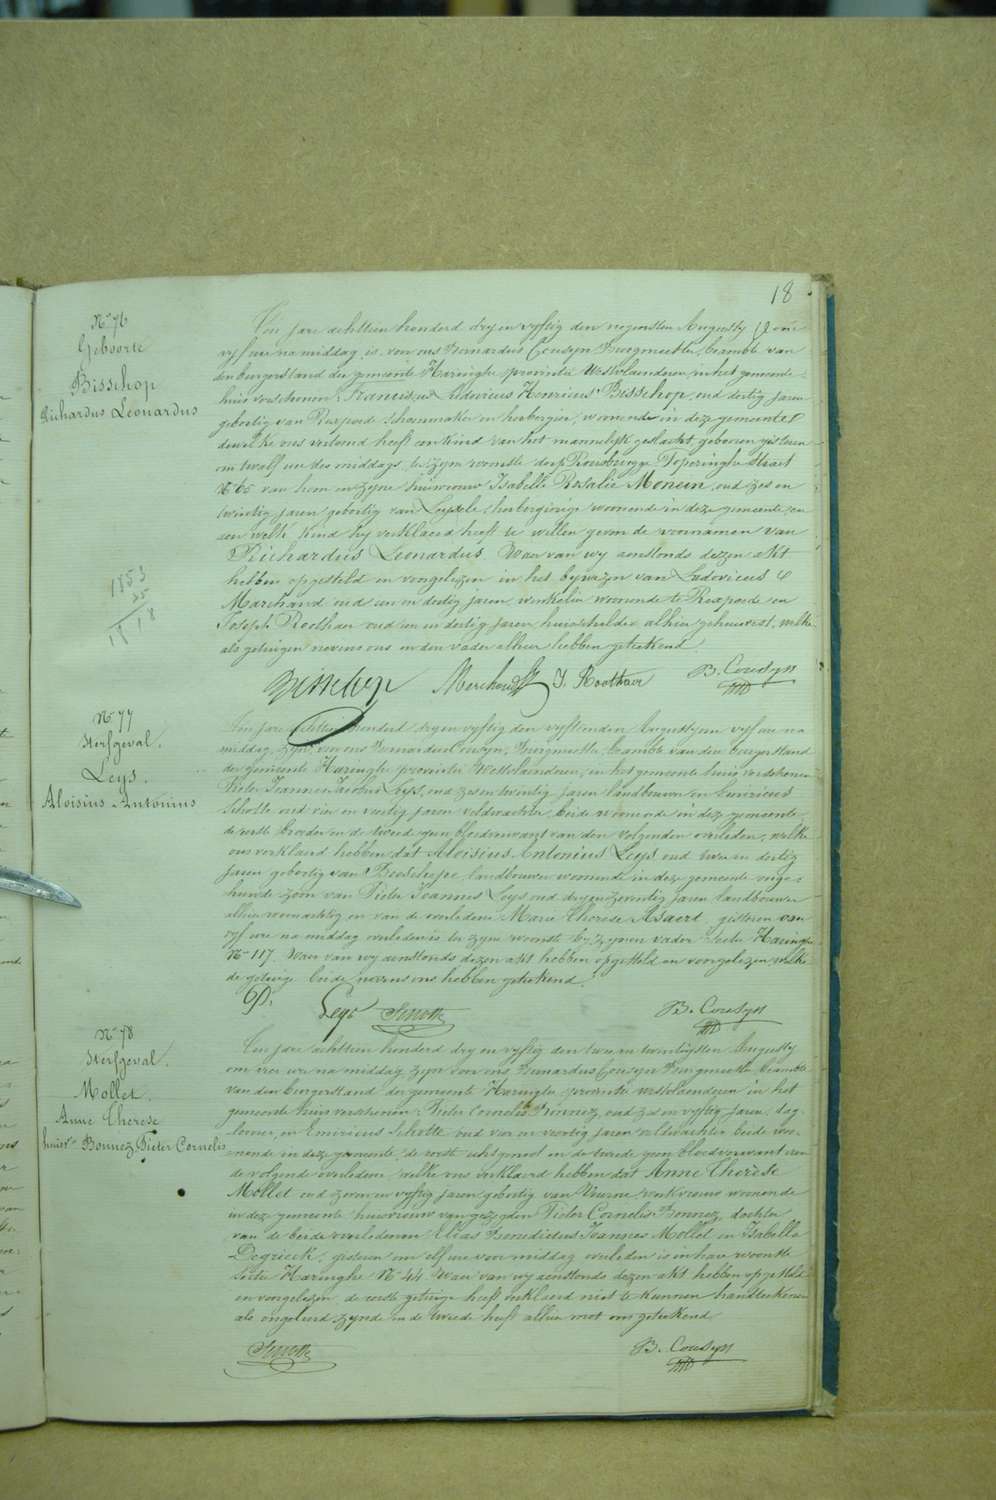 18
N° 76
Geboorte
Bisschop
Richardus Leonardus
Ten jare achttien honderd dry en vyftig den negensten Augusty om
vyf ure na middag is voor ons Bernardus Cousyn Burgmeester, beambte van
den burgerstand der gemeente Haringhe provintie Westvlaenderen, in het gemeente
huis verschenen Franciscus Ludovicus Henricus Bisschop, oud dertig jaren
geboortig van Rexpoede schoenmaker en herbergier, wonende in deze gemeente
dewelke ons vertoond heeft een kind van het mannelyk geslacht, geboren gisteren
om twaelf ure des middags, te zyner woonste dorp Rousbrugge Poperinghe straet
N° 65 van hem en zyne huisvrouw Isabelle Rosalie Monein, oud zes en
twintig jaren geboortig van Leysele herbergierige woonende in deze gemeente, en
aen welk kind hy verklaerd heeft te willen geven de voornamen van
Richardus Leonardus. Waer van wy aenstonds dezen akt
hebben opgesteld en voorgelezen in het bywezen van Ludovicus
Marchand oud een en dertig jaren, winkelier woonende te Rexpoede en
Joseph Roothaer oud een en dertig jaren huisschilder alhier gehuisvest, welke
als getuigen nevens ons en den vader alhier hebben geteekend.
1853
25
1818
Bisschop J. Roothaer B. Cousyn
N° 77
Sterfgeval.
Leys.
Aloisius Antonius
Ten jare achttien honderd dry en vyftig den vyftienden Augusty om vyf ure na
middag, zyn voor ons Bernardus Cousyn, Burgmeester, beambte van den burgerstand
der gemeente Haringhe provintie Westvlaenderen, in het gemeente huis verschenen
Pieter Joannes Leys, oud zes en twintig jaren landbouwer en Henricus
Scholte oud vier en veertig jaren veldwachter, beide wonende in deze gemeente
de eerste broeder en de tweede geen bloedverwant van den volgenden overleden, welke
ons verklaerd hebben dat Aloisius Antonius Leys oud twee en dertig
jaren geboortig van landbouwer wonende in deze gemeente onge-
huwde zoon van Pieter Joannes Leys oud dry en zeventig jaren landbouwer
alhier woonachtig en van de overledene Marie Therese Asaert, gisteren om
vyf ure na middag overleden is ter zyne woonste by zynen vader Sectie Haringhe
N° 117. Waer van wy aenstonds dezen akt hebben opgesteld en voorgelezen welke
de getuige beide nevens ons hebben geteekend.
Leys B. Cousyn
N° 78
Sterfgeval.
Mollet.
Anne Therese
huisv. Bonnez Pieter Cornelis
Ten jare achttien honderd dry en vyftig den twee en twintigsten Augusty
om vier ure na middag zyn voor ons Bernardus Cousyn Burgmeester beambte
van den burgerstand der gemeente Haringhe provintie westvlaenderen in het
gemeente huis verschenen: Pieter Cornelis Bonnez, oud zes en vyftig jaren, dag-
looner, en Henricus Scholte oud vier en veertig jaren veldwachter beide woo-
nende in deze gemeente, de eerste echtgenoot en de tweede geen bloedverwant van
de volgende overledene, welke ons verklaerd hebben dat Anne Therèse
Mollet oud zeven en vyftig jaren geboortig van Veurne werkvrouw woonende
in deze gemeente huisvrouw van gezegden Pieter Cornelis Bonnez, dochter
van de beide overledenen Elias Benedictus Joannes Mollet en Isabella
Degrieck, gisteren om elf ure voor middag overleden is in haer woonste
Sectie Haringhe N° 44. Waer van wy aenstonds dezen akt hebben opgesteld
en voorgelezen, de eerste getuige heeft verklaerd niet te kunnen handteekenen
als ongeleerd zynde en de tweede heeft alhier met ons geteekend.
B. Cousyn